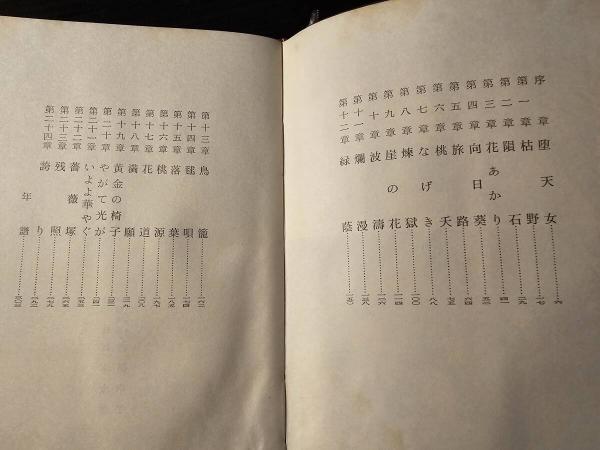 序章 堕天女……六
第一章 枯野……一七
第二章 隕石……二九
第三章 花あかり……四一
第四章 向日葵……五三
第五章 旅路……六四
第六章 桃夭……七五
第七章 なげき……八八
第八章 煉獄……一〇〇
第九章 崖の花……一一四
第十章 波濤……一二六
第十一章 爛漫……一三八
第十二章 緑蔭……一五〇
第十三章 鳥籠
第十四章 毬唄
第十五章 落葉
第十六章 桃源
第十七章 花道
第十八章 満願
第十九章 黄金の椅子
第二十章 やがて光が
第二十一章 いよよ華やぐ
第二十二章 薔薇塚
第二十三章 残照
第二十四章 誇り
年譜